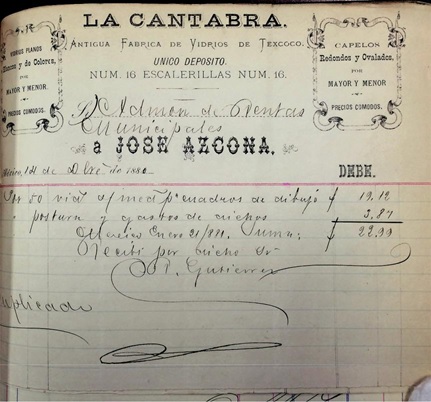 LA CANTABRA.
ANTIGUA FABRICA DE VIDRIOS DE TEXCOCO.
UNICO DEPOSITO.
NUM. 16 ESCALERILLAS NUM. 16.
VIDRIOS PLANOS
Blancos y de Colores,
POR
MAYOR Y MENOR
PRECIOS COMODOS.
CAPELOS
Redondos y Ovalados,
POR
MAYOR Y MENOR.
PRECIOS COMODOS.
Admon de Rentas
Municipales
a JOSE AZCONA.
México, de Dbre de 1880 DEBE.
Por 50 vid s/ med p. cuadros de dibujo $ 19,12
" postura y gastos de dichos 3,87
Mexico Enero 21/881. Suma: $ 22.99
Recibi por dicho Sr
R. Gutierrez
uplicado